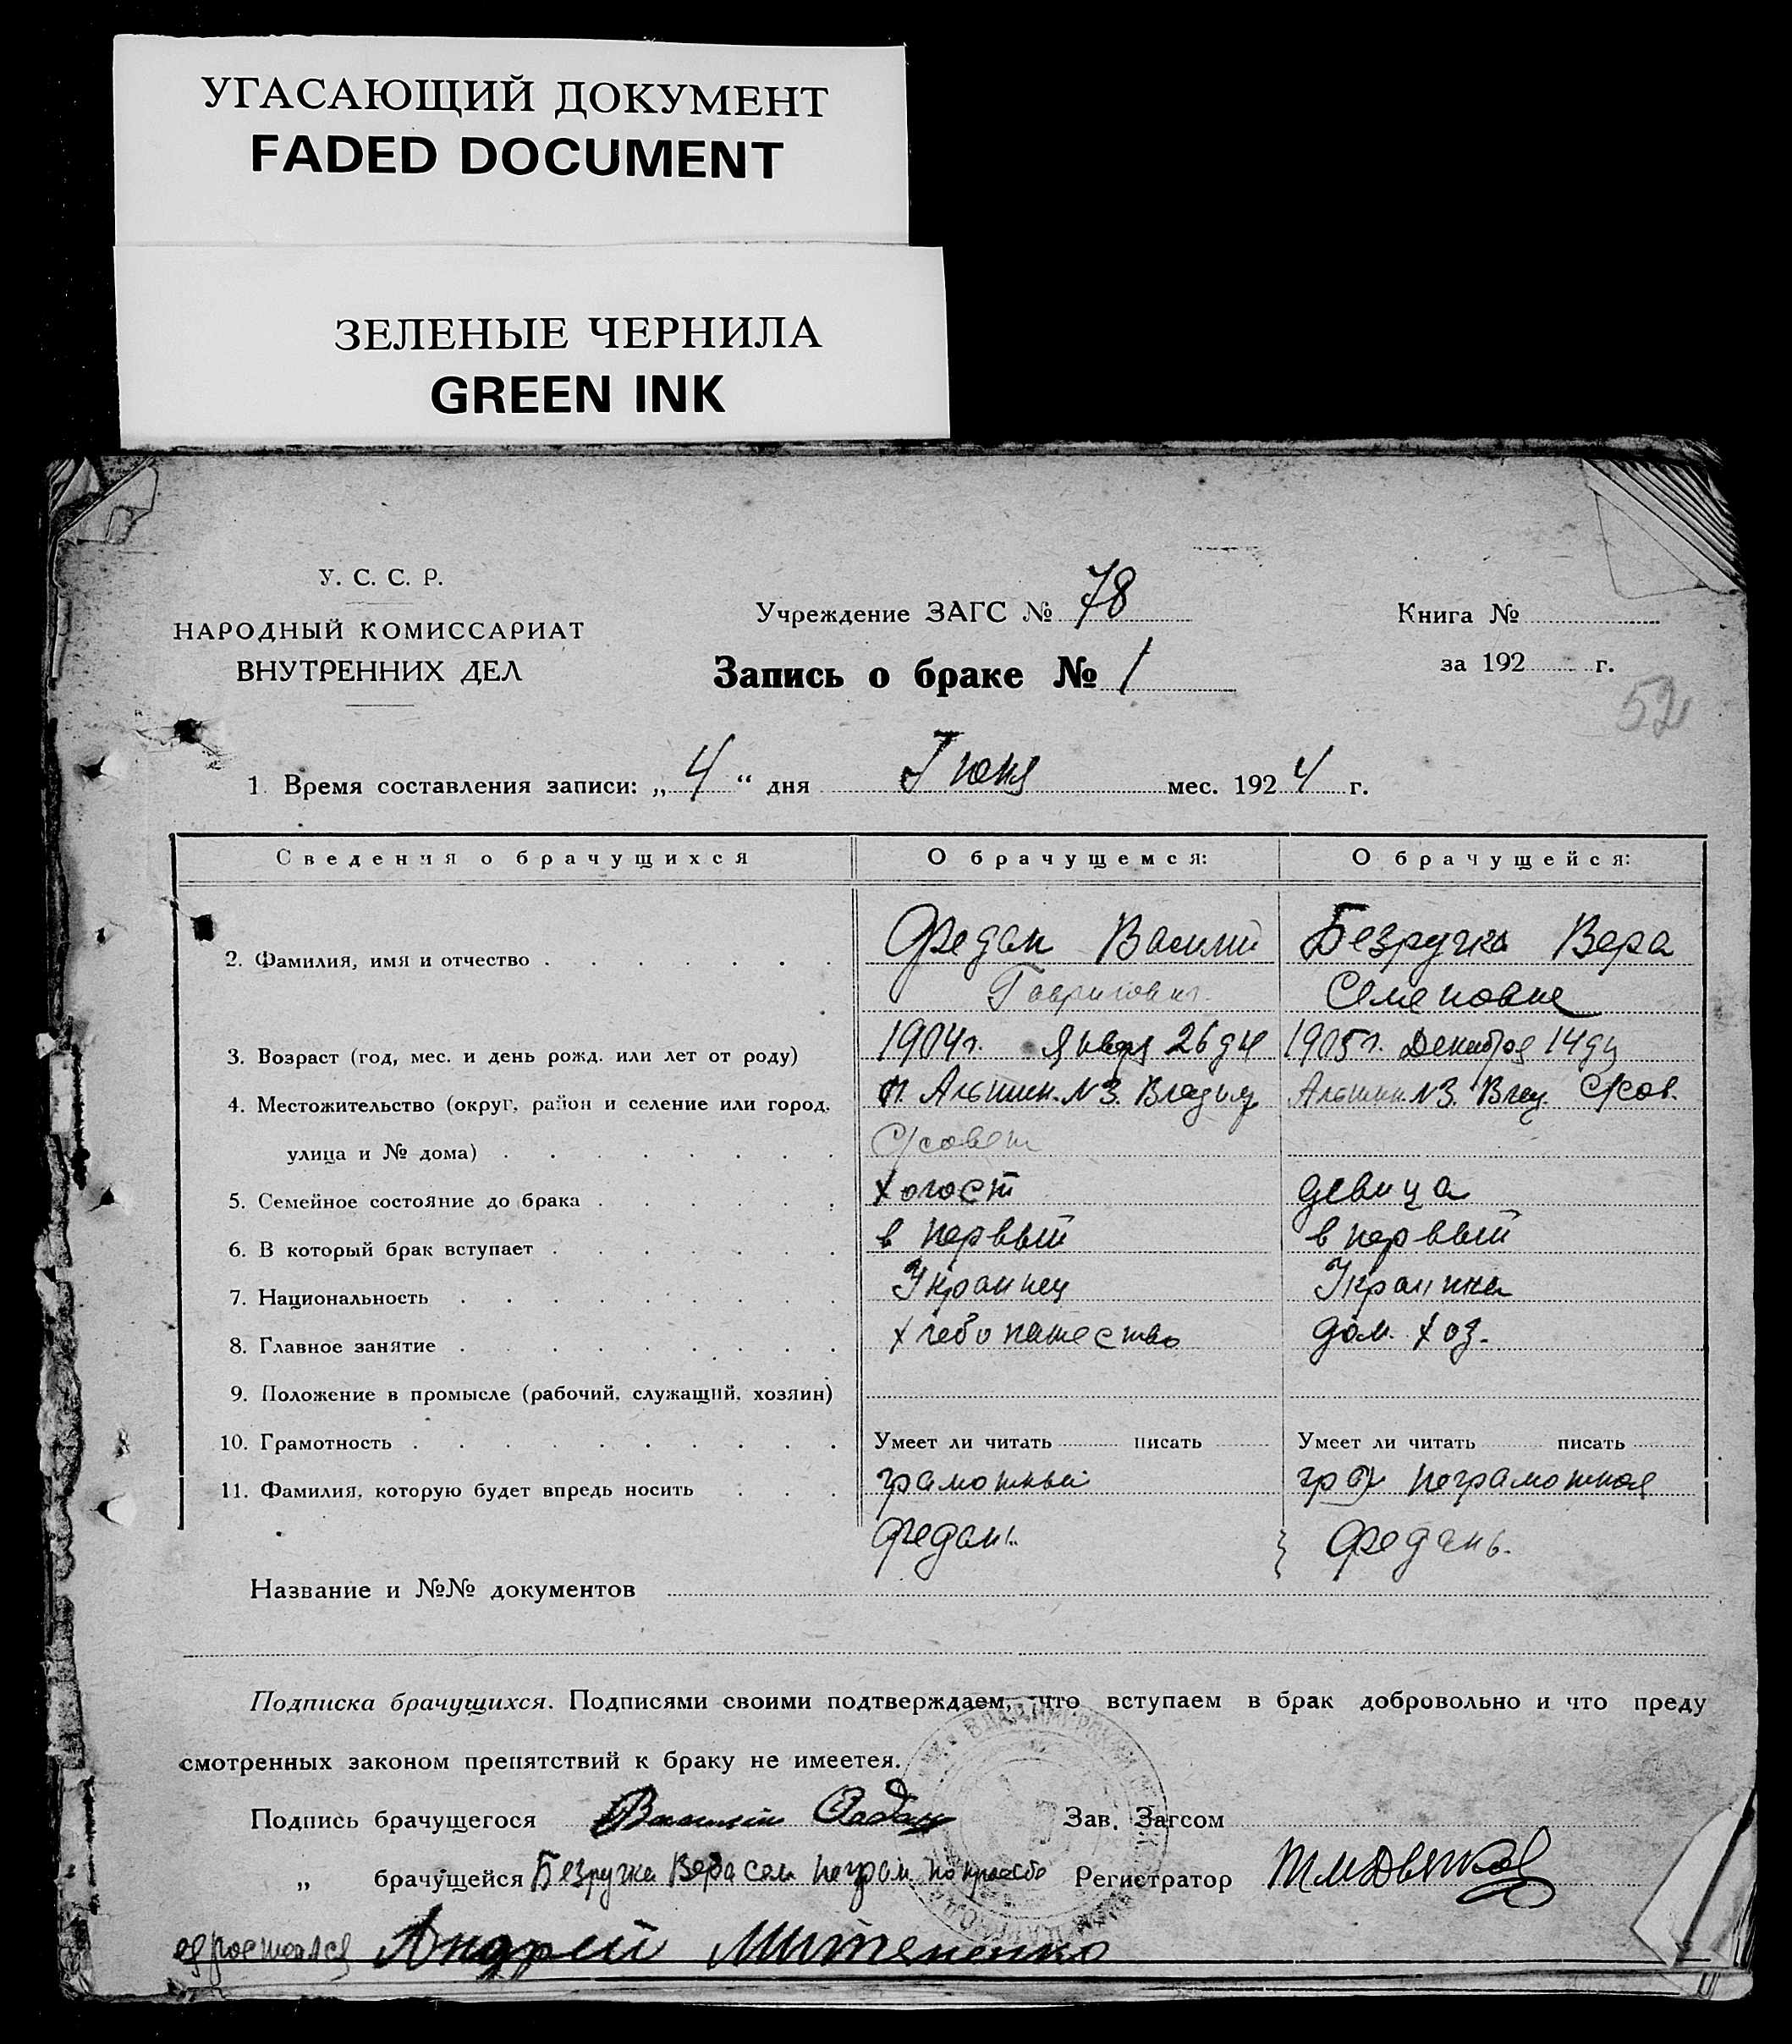 УГАСАЮЩИЙ ДОКУМЕНТ
FADED DOCUMENT
ЗЕЛЕНЫЕ ЧЕРНИЛА
GREEN INK
У. С. С. Р.
НАРОДНЫЙ КОМИССАРИАТ
ВНУТРЕННИХ ДЕЛ
Учреждение ЗАГС № 78
Запись о браке № 1
Книга №
за 192 г.
52
1. Время составления записи: „ 4 “ дня Июня мес. 1924 г.
Сведения о брачущихся О брачущемся: О брачущейся:
2. Фамилия, имя и отчество Федан Василий Безручко Вера
Гаврилович Семеновне
3. Возраст (год, мес. и день рожд. или лет от роду) 1904г. Января 26 дня 1905г. Декабря 14 дн
4. Местожительство (округ, район и селение или город, п. Альтин. N3. Владим Альтин. N3. Влад. С/сов.
улица и № дома) С/совет
5. Семейное состояние до брака холост девица
6. В который брак вступает в первый в первый
7. Национальность Украинец Украинка
8. Главное занятие хлебопашество дом. хоз.
9. Положение в промысле (рабочий, служащий, хозяин)
10. Грамотность Умеет ли читать писать Умеет ли читать писать
11. Фамилия, которую будет впредь носить грамотный неграмотная
Федань Федань.
Название и №№ документов
Подписка брачущихся. Подписями своими подтверждаем, что вступаем в брак добровольно и что преду
смотренных законом препятствий к браку не имеется.
Подпись брачущегося Василий Федан Зав. Загсом
„ брачущейся Безручко Вера Сем неграм по просьбе Регистратор
Андрей Митяненко